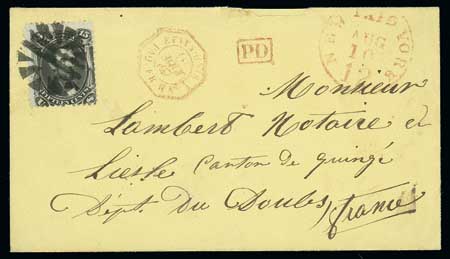 15
PD
NEW PAID YORK
AUG
10
15
Monsieur
Lambert Notaire et
Liesle Canton de quingé
Dépt. Du Doubs, france